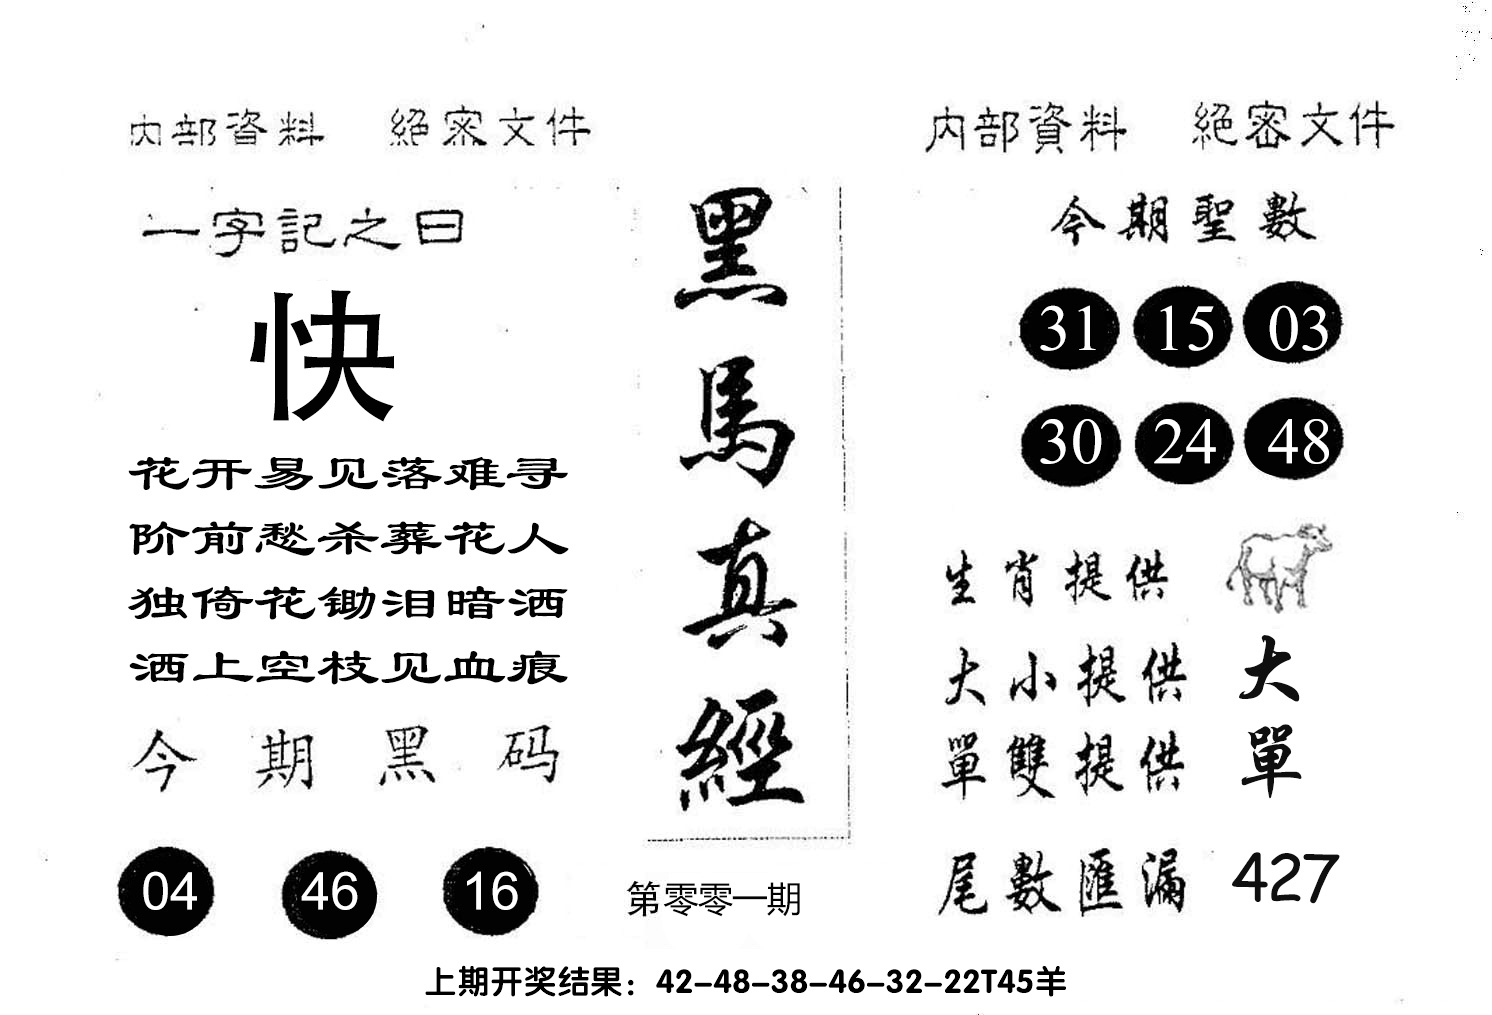 内部資料 絕密文件
一字記之曰
快
花开易见落难寻
阶前愁杀葬花人
独倚花锄泪暗洒
洒上空枝见血痕
今期黑码
04 46 16
黑馬真經
第零零一期
内部資料 絕密文件
今期聖數
31 15 03
30 24 48
生肖提供
大小提供 大
單雙提供 單
尾數匯漏 427
上期开奖结果：42-48-38-46-32-22T45羊